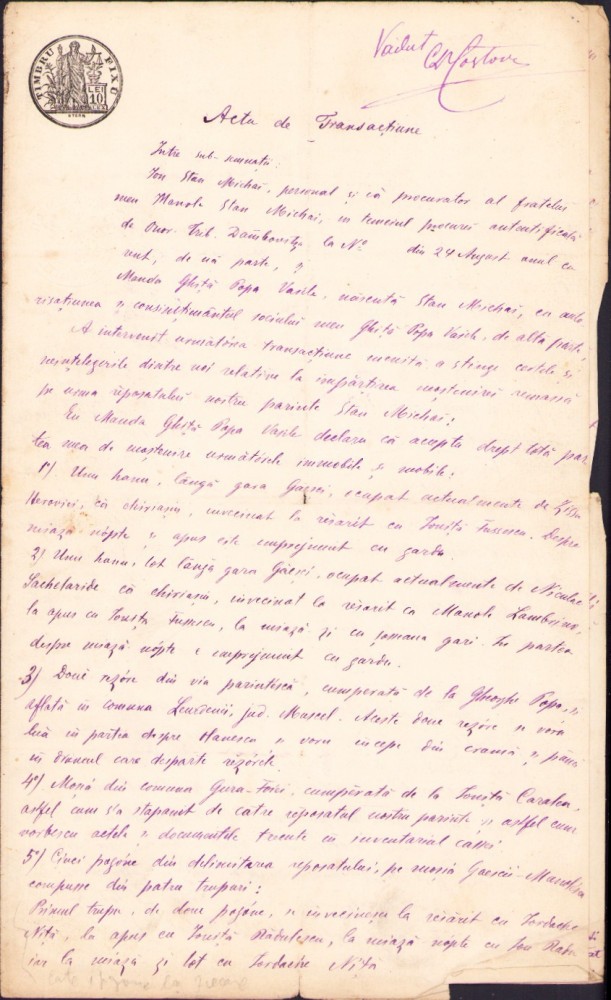 TIMBRU FIXU
LEI
10
Vădut
Actu de Transacțiune
Intre sub-semnații:
Ion Stan Michai, personal și că procurator al fratelui
meu Manole Stan Michai, in temeiul procurii autentificată
de Onor. Trib. Dâmbovița la No din 24 August anul cu
rent, de uă parte, și
Manda Ghiță Popa Vasile, născută Stan Michai, cu auto
risațiunea și consimțimântul soțului meu Ghiță Popa Vasile, de altă parte
A intervenit următórea transacțiune menită a stinge certele și
neințelegerile dintre noi relative la impărțirea moștenirii remasă
pe urma reposatului nostru parinte Stan Michai;
Eu Manda Ghiță Popa Vasile declaru că acceptu drept totă par
tea mea de moștenire următórele immobile și mobile:
1º) Unu hanu, lângă gara Gaesci, ocupat actualmente de
Herovici, că chiriașiu, invecinat la resărit cu Ioniță Fusescu. Despre
miază nópte și apus este imprejmuit cu gardu.
2) Unu hanu, tot lângă gara Gaesci, ocupat actualmente de Niculae
Sachelaride că chiriașiu, invecinat la resărit cu Manole
la apus cu Ioniță Fusescu, la miază zi cu șoseaua gari. In partea
despre miază nópte e imprejmuit cu gardu.
3) Doue rezóre din via parintéscă, cumperată de la Gheorghe Popa, și
aflată in comuna Leurdenii, jud. Muscel. Aceste doue rezóre se voru
luă in partea despre Hanescu și voru incepe din cramă și până
in drumul care desparte rezórele
4º) Moșia din comuna Gura-Foii, cumpărată de la Ioniță
astfel cum s'a stapanit de catre reposatul nostru parinte și astfel cum
vorbescu actele și documentele trecute in inventariul casei
5º) Cinci pogóne din delimitarea reposatului, pe moșia Gaescii-
compuse din patru trupuri:
Primul trupu, de doue pogóne, se invecinesce la resărit cu Iordache
Niță, la apus cu Ioniță Rădulescu, la miază nópte cu Ion
iar la miază zi tot cu Iordache Niță